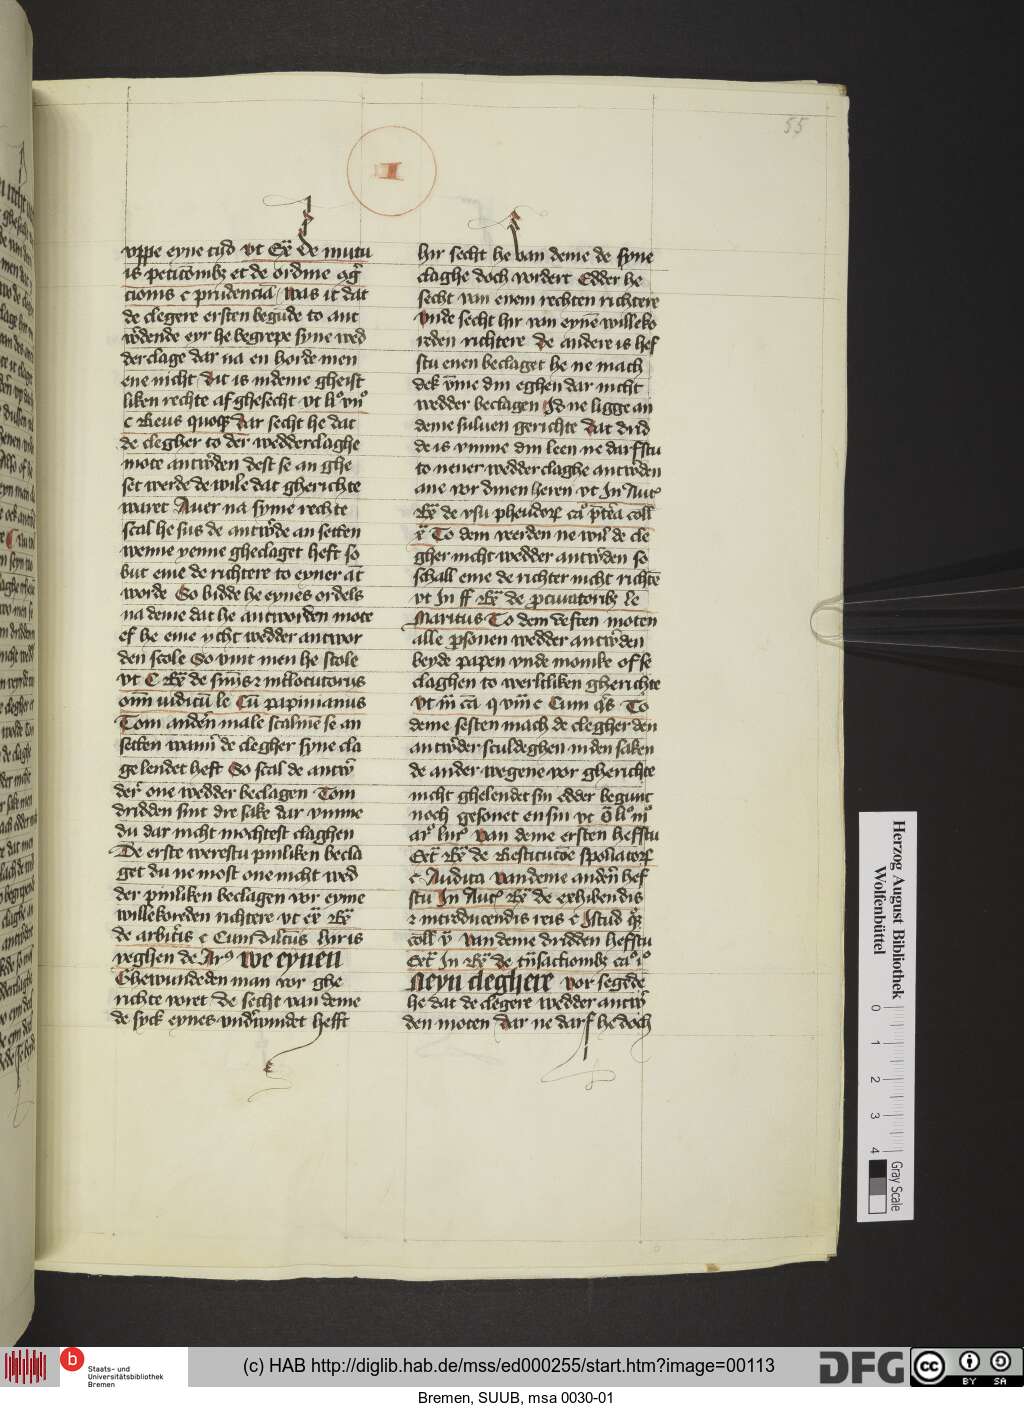 55
I
vppe eyne tijd vt Ex̄ de mutu
is peticōnibꝫ et de ordine cogͫ
cionis c prudenciā Was it dat
de clegere ersten begūde to ant
wͦdende eyr he begrepe syne wed
derclage dar na en horde men
ene nicht Dit is indeme gheist
liken rechte afghesecht vt
c Reus quoqꝫ dar secht he dat
de clegher to der wedderclaghe
mote antwͦden dest se an ghe
set werde de wile dat gherichte
waret Auer na syme rechte
scal he sus de antwͦde an setten
wenne yenne gheclaget heft so
but eme de richtere to eyner āt
worde So bidde he eynes ordels
na deme dat he antworden mote
ef he eme ycht wedder antwor
den scole So vint men he scole
vt C Rͣ de sentēciis ⁊ int̄locutoriis
omͫ iudicū le Cū papinianus
Tom andern̄ male scalmē se an
setten wanͫ de clegher syne cla
ge lendet heft So scal de antwͦ
der one wedder beclagen Tom
dridden sint dre sake dar vmme
du dar nicht mochtest claghen
De erste werestu pinliken becla
get du ne most one nicht wed
der pinliken beclagen vor eyme
willekoreden richtere vt ex̄ Rͣ
de arbitͥis c Cum dilctus
veghen de Arꝰ we eynen
Ghewundeden man vor ghe
richte voret De secht van deme
de syck eynes vndͥwindet hefft
hir secht he van deme de syne
claghe doch vordert Edder he
secht van enem rechten richtere
vnde secht hir van eynē willeko
reden richtere De andere is hef
stu enen beclaget he ne mach
dek vͫme din eghen dar nicht
wedder beclagen Id ne ligge an
deme suluen gerichte Dat drid
de is vmme din leen ne darfstu
to nener wedderclaghe antwͦden
ane vor dinen heren vt In Autͨ
Rͣ de vsu pheudorꝫ
To dem verden ne wil de cle
gher nicht wedder antwͦden so
schall eme de richter nicht richtē
vt In ff Rͣ de ꝓcuratoribꝫ le
Maritus To dem veften moten
alle ꝑsonen wedder antwͦden
beyde papen vnde monike of se
claghen to werltliken gherichte
vt Cum To
deme sesten mach de clegher den
antwͦder sculdeghen inden saken
de ander wegene vor gherichte
nicht ghelendet sin edder begunt
noch gesonet en sin vt
van deme ersten hefstu
Ext̄ Rͣ de Restitucōe spoliatorꝫ
c Audita van deme andern̄ hef
stu In Autͨ Rͣ de exhibendis
⁊ introducendis reis c Istud
van deme dridden hefstu
Ext̄ In Rͣ de tͣnsactionibꝫ
Neyn cleghere vor segede
he dat de clegere wedder antwͦ
den moten dar ne darf he doch
Herzog August Bibliothek
Wolfenbüttel
0 1 2 3 4
Gray Scale
b Staats- und
Universitätsbibliothek
Bremen
(c) HAB http://diglib.hab.de/mss/ed000255/start.htm?image=00113
DFG
cc BY SA
Bremen, SUUB, msa 0030-01